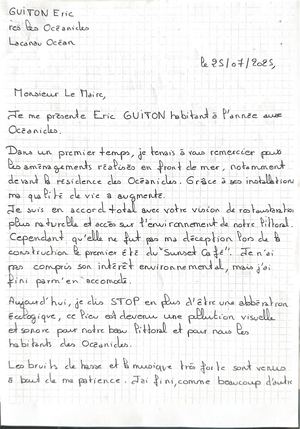 GUITON Eric
res les Océanides
Lacanau Océan
le 25/07/2025,
Monsieur Le Maire,
Je me présente Eric GUITON habitant à l'année aux
Océanides.
Dans un premier temps, je tenais à vous remercier pour
les aménagements réalisés en front de mer, notamment
devant la residence des Océanides. Grâce à ses installations
ma qualité de vie a augmenté.
Je suis en accord total avec votre vision de
plus naturelle et axée sur l'environnement de notre littoral.
Cependant qu'elle ne fut pas ma déception lors de la
construction le premier été du "Sunset Café". Je n'ai
pas compris son intérêt environnemental, mais j'ai
fini par m'en accomodé.
Aujourd'hui, je dis STOP en plus d'être une abbération
écologique, ce lieu est devenu une pollution visuelle
et sonore pour notre beau littoral et pour nous les
habitants des Océanides.
Les bruits de basse et la musique très forte sont venus
à bout de ma patience. J'ai fini, comme beaucoup d'autre